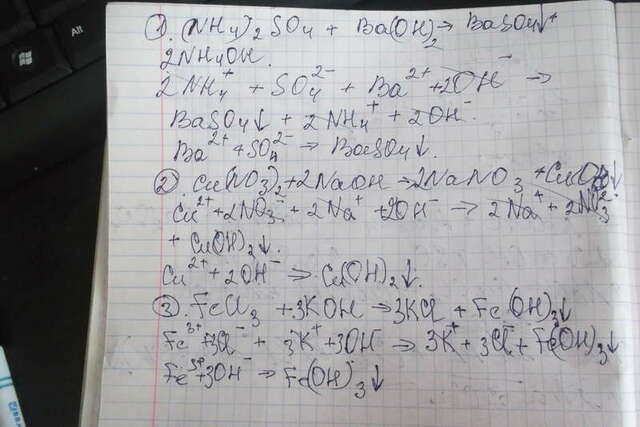 Alt
1. (NH4)2 SO4 + Ba(OH)2 → BaSO4↓ +
2NH4OH.
2NH4^+ + SO4^2- + Ba^2+ + 2OH^- →
BaSO4↓ + 2NH4^+ + 2OH^-.
Ba^2+ + SO4^2- → BaSO4↓.
2. Cu(NO3)2 + 2NaOH → 2NaNO3 + Cu(OH)2↓
Cu^2+ + 2NO3^- + 2Na^+ + 2OH^- → 2Na^+ + 2NO3^-
+ Cu(OH)2↓.
Cu^2+ + 2OH^- → Cu(OH)2↓.
3. FeCl3 + 3KOH → 3KCl + Fe(OH)3↓
Fe^3+ + 3Cl^- + 3K^+ + 3OH^- → 3K^+ + 3Cl^- + Fe(OH)3↓
Fe^3+ + 3OH^- → Fe(OH)3↓